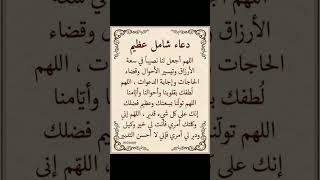 دعاء شامل عظيم
اللهم أجعل لنا نصيباً في سعة
الأرزاق وتيسير الأحوال وقضاء
الحاجات وإجابة الدعوات ، اللهم
لُطفك بقلوبنا وأحوالنا وأيامنا
اللهم تولّنا بسعتك وعظيم فضلك
إنك على كل شيء قدير ، اللهم إني
وكلتك أمري فأنت لي خير وكيل
ودبر لي أمري فإني لا أحسن التدبير